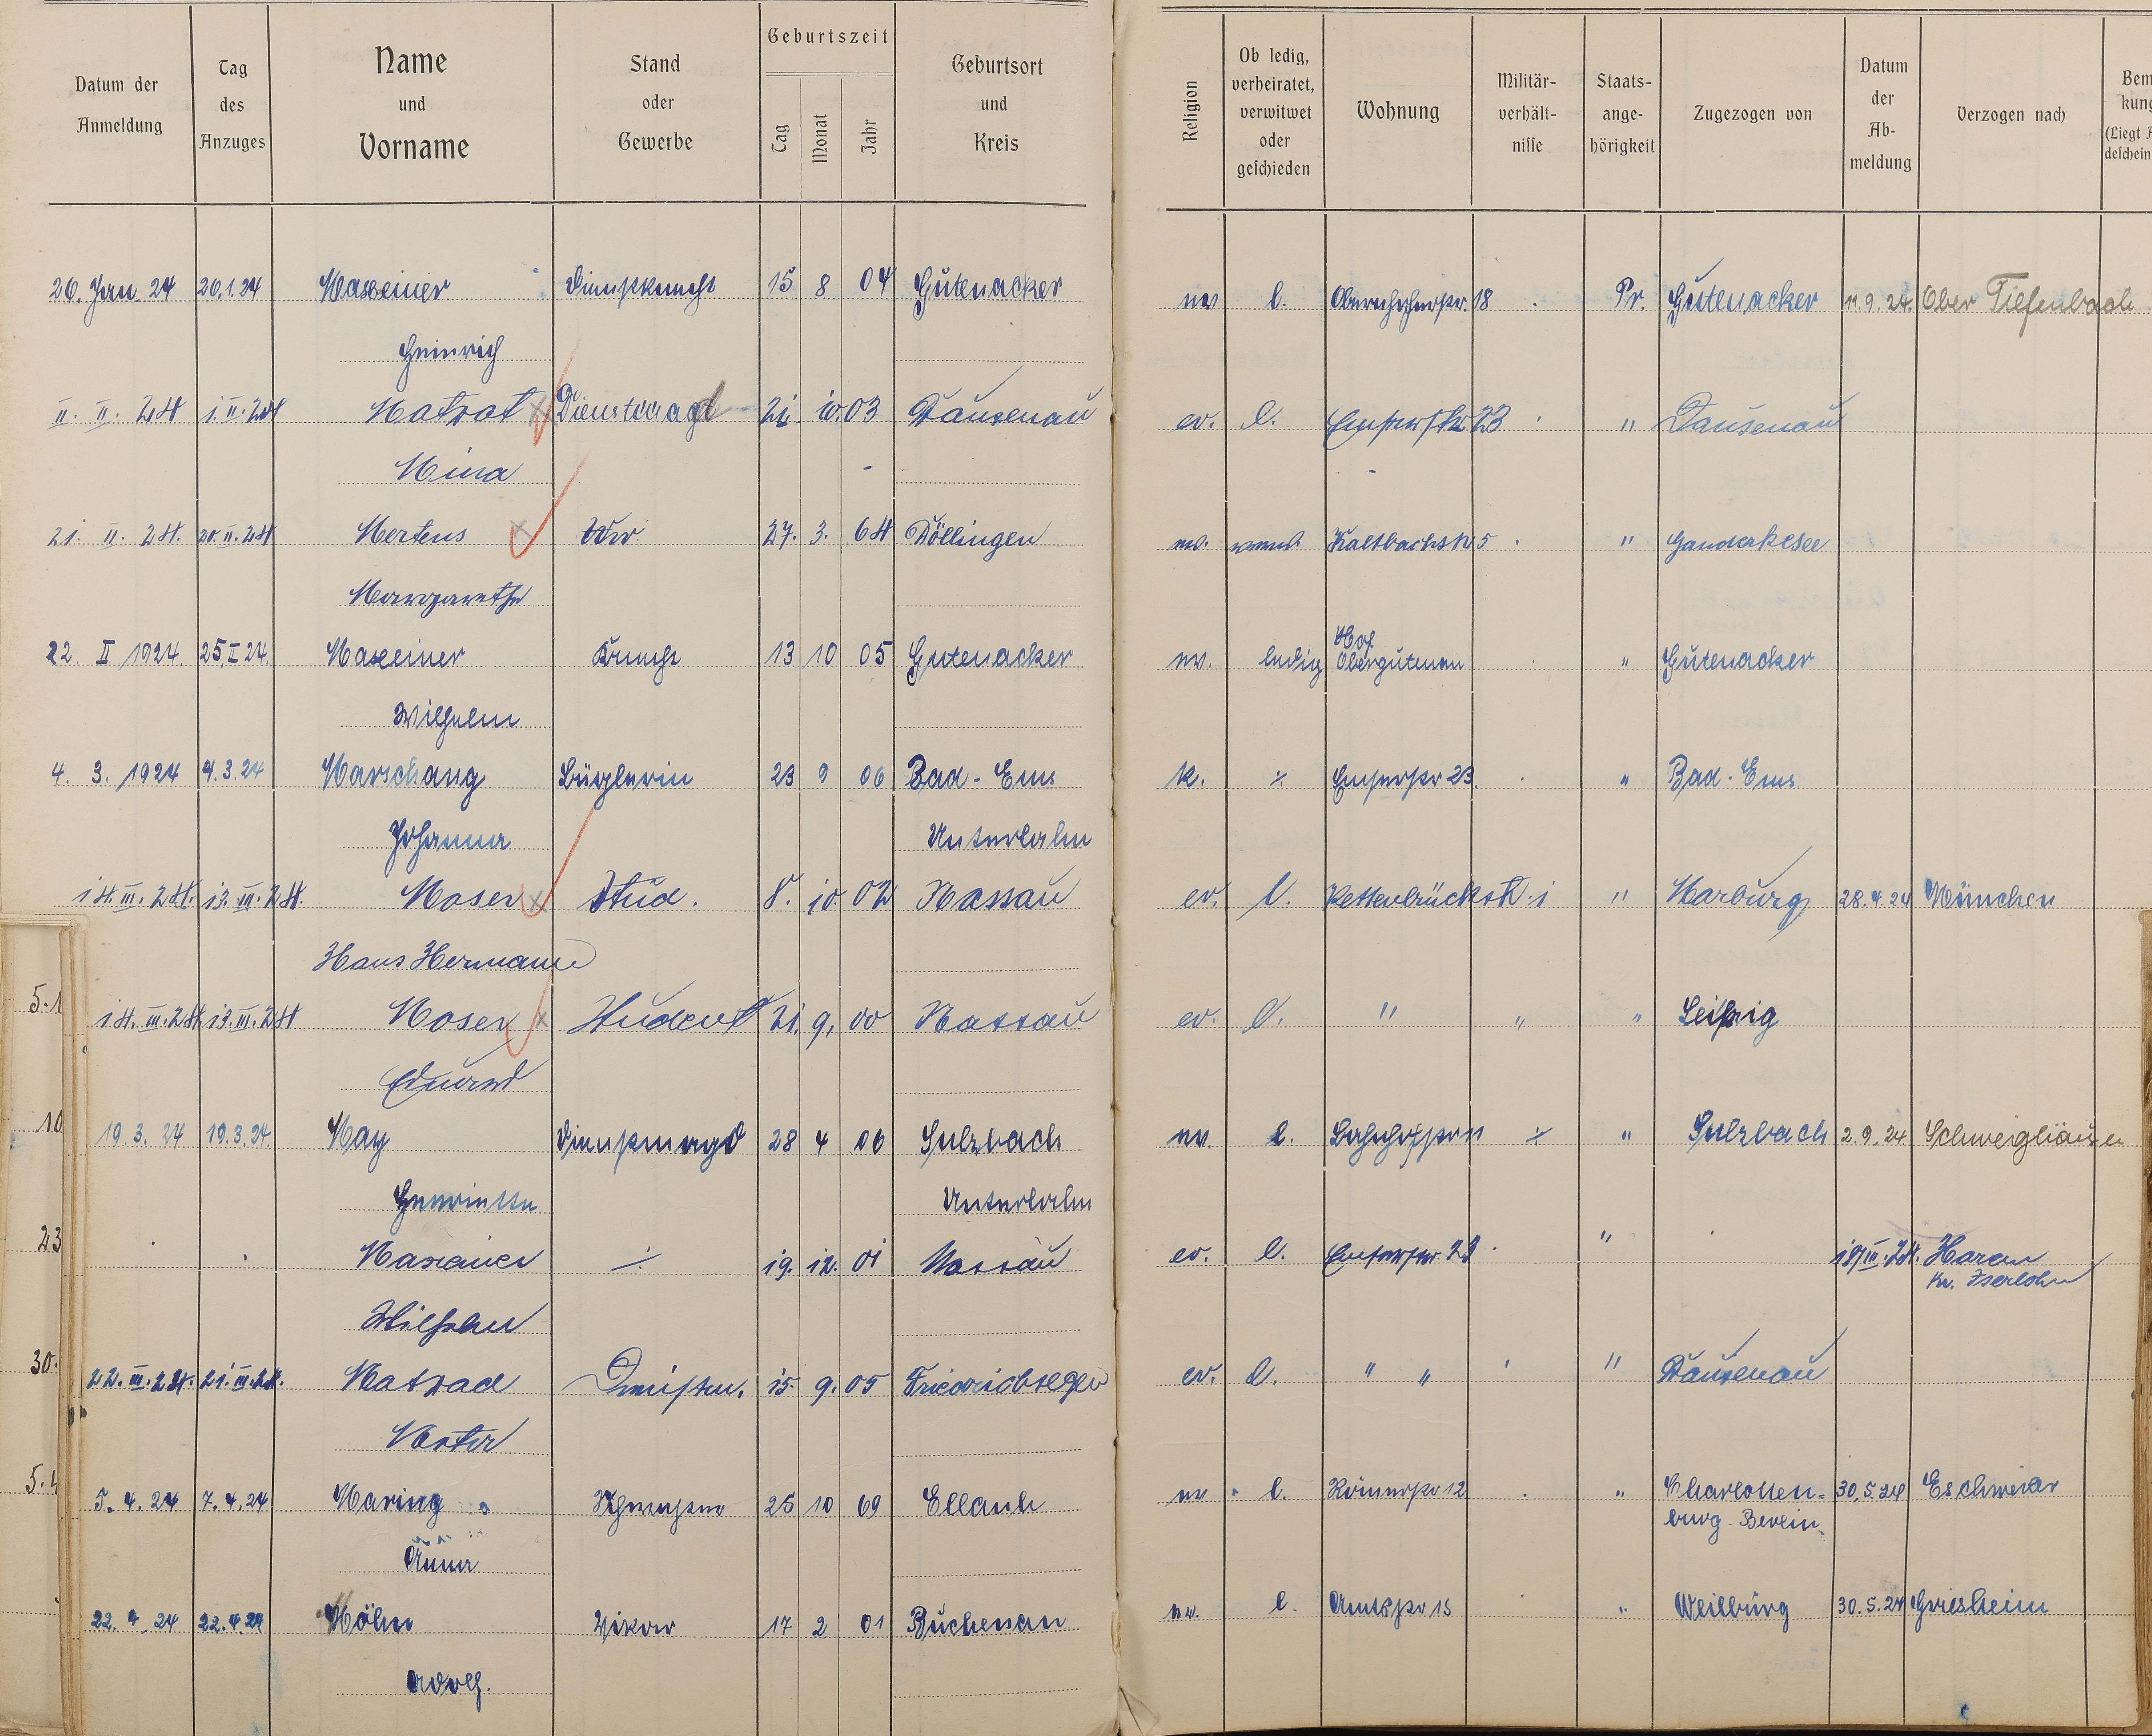 Datum der Anmeldung | Tag des Anzuges | Name und Vorname | Stand oder Gewerbe | Geburtszeit Tag Monat Jahr | Geburtsort und Kreis | Religion | Ob ledig, verheiratet, verwitwet oder geschieden | Wohnung | Militär-verhält-nisse | Staats-ange-hörigkeit | Zugezogen von | Datum der Ab-meldung | Verzogen nach | Bem kung (Liegt A deschein
26. Jan. 24 26.1.24 Maxeiner Dienstknecht 15 8 04 Gutenacker ev l. Obernhoferstr. 18 Pr. Gutenacker 11.9.24. Ober Tiefenbach
Heinrich
II. II. 24 1. II. 24 Matrat Dienstmagd 21. 10. 03 Dausenau ev. l. Emserstr 23 " Dausenau
Mina
21. II. 24. 20. II. 24 Mertens Ww. 27. 3. 64 Döllingen ev. verw. Kaltbachstr 5 " Ganderkesee
Margarethe
22 II 1924 25 I 24. Maxeiner Knecht 13 10 05 Gutenacker ev. ledig Hof " Gutenacker
Wilhelm
4. 3. 1924 4.3.24 Marschang Büglerin 23 9 06 Bad-Ems k. ⁒ Emserstr 23. " Bad-Ems.
Johanna Unterlahn
14. III. 24. 13. III. 24. Moser Stud. 8. 10. 02 Nassau ev. l. Kettenbrückstr. 1 " Marburg 28.4.24 München
Hans Hermann
5.1 14. III. 24 13. III. 24 Moser Student 21. 9. 00 Nassau ev. l. " " " Leipzig
Eduard
10 19.3.24 19.3.24. May Dienstmagd 28 4 06 Sulzbach ev. l. Bahnhofstr 11 ⁒ " Sulzbach 2.9.24 Schweighausen
Henriette Unterlahn
23 Maxeiner ⁒ 19. 12. 01 Nassau ev. l. Emserstr. 22 " 19/III.24. Haren
Kr. Iserlohn
Wilhelm
30. 22. III. 24. 21. III. 24. Matrad 15. 9. 05 Friedrichsegen ev. l. " " " Dausenau
5.4 5.4.24 7.4.24 Maring 25 10 69 ev l. Römerstr 12 " Charlotten- 30.5.24 Eschweiler
Anna burg-Berlin
22.4.24 22.4.24 Höhn Vikar 17 2 01 Buchenau ev. l. Amtsstr 15 " Weilburg 30.5.24 Griesheim
Adolf.